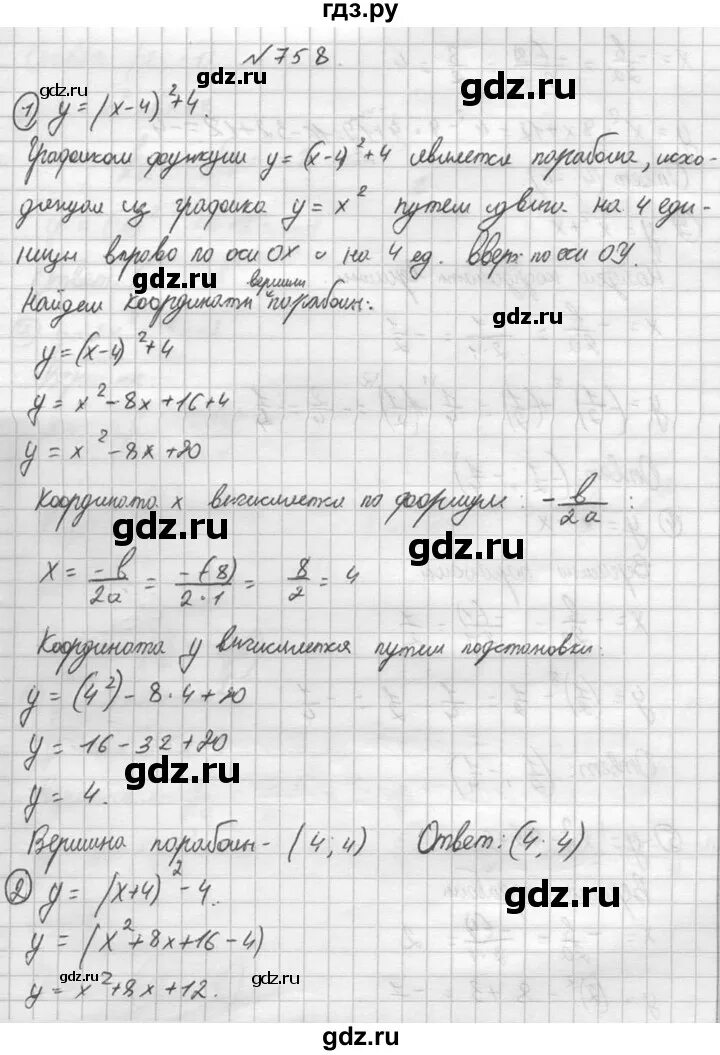 гдз.ру
№758
1) y=(x-4)²+4.
Графиком функции y=(x-4)²+4 является парабола, исхо-
дящая из графика y=x² путем сдвига на 4 еди-
ницы вправо по оси OX и на 4 ед. вверх по оси OY.
Найдем координаты вершины параболы:
y=(x-4)²+4
y=x²-8x+16+4
y=x²-8x+20
Координата x вычисляется по формуле: -b/2a:
x = -b/2a = -(-8)/2·1 = 8/2 = 4
Координата y вычисляется путем подстановки:
y=(4²)-8·4+20
y=16-32+20
y=4.
Вершина параболы - (4;4) Ответ: (4;4)
2) y=(x+4)²-4.
y=(x²+8x+16-4)
y=x²+8x+12.
gdz.ru
gdz.ru
gdz.ru
gdz.ru
gdz.ru
gdz.ru
gdz.ru
gdz.ru
gdz.ru
gdz.ru
gdz.ru
gdz.ru
gdz.ru
gdz.ru